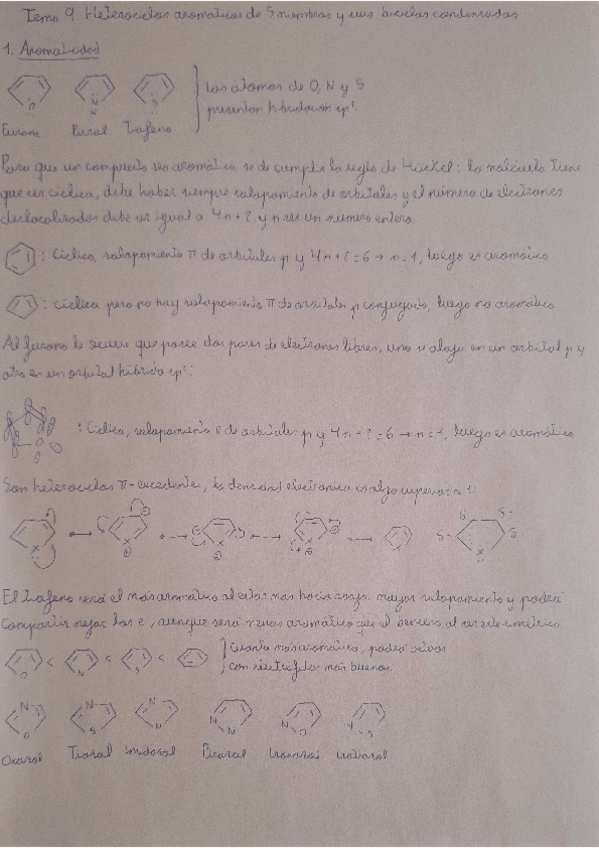 Tema 9 Heterociclos aromáticos de 5 miembros y sus biciclos condensados
1. Aromaticidad
Los átomos de O, N y S
presentan hibridación sp²
Furano Pirrol Tiofeno
Para que un compuesto sea aromático se de cumplir la regla de Hückel: la molécula tiene
que ser cíclica, debe haber siempre solapamiento de orbitales y el número de electrones
deslocalizados debe ser igual a 4n+2 y n ser un número entero.
: Cíclico, solapamiento π de orbitales p y 4n+2=6 → n=1, luego es aromático
: Cíclica pero no hay solapamiento π de orbitales p conjugados, luego no aromático
Al furano le ocurre que posee dos pares de electrones libres, uno se aloja en un orbital p y
otro en un orbital híbrido sp²:
: Cíclica, solapamiento π de orbitales p y 4n+2=6 → n=1, luego es aromático
Son heterociclos π-excedentes, la densidad electrónica es algo superior a 1:
El tiofeno será el más aromático al estar más hacia mayor solapamiento y podrá
compartir mejor los e⁻, aunque será menos aromático que el benceno al ser este simétrico
cuanto más aromático, podrá
con nucleófilos más buenos
Oxazol Tiazol Imidazol Pirazol Isoxazol Isotiazol